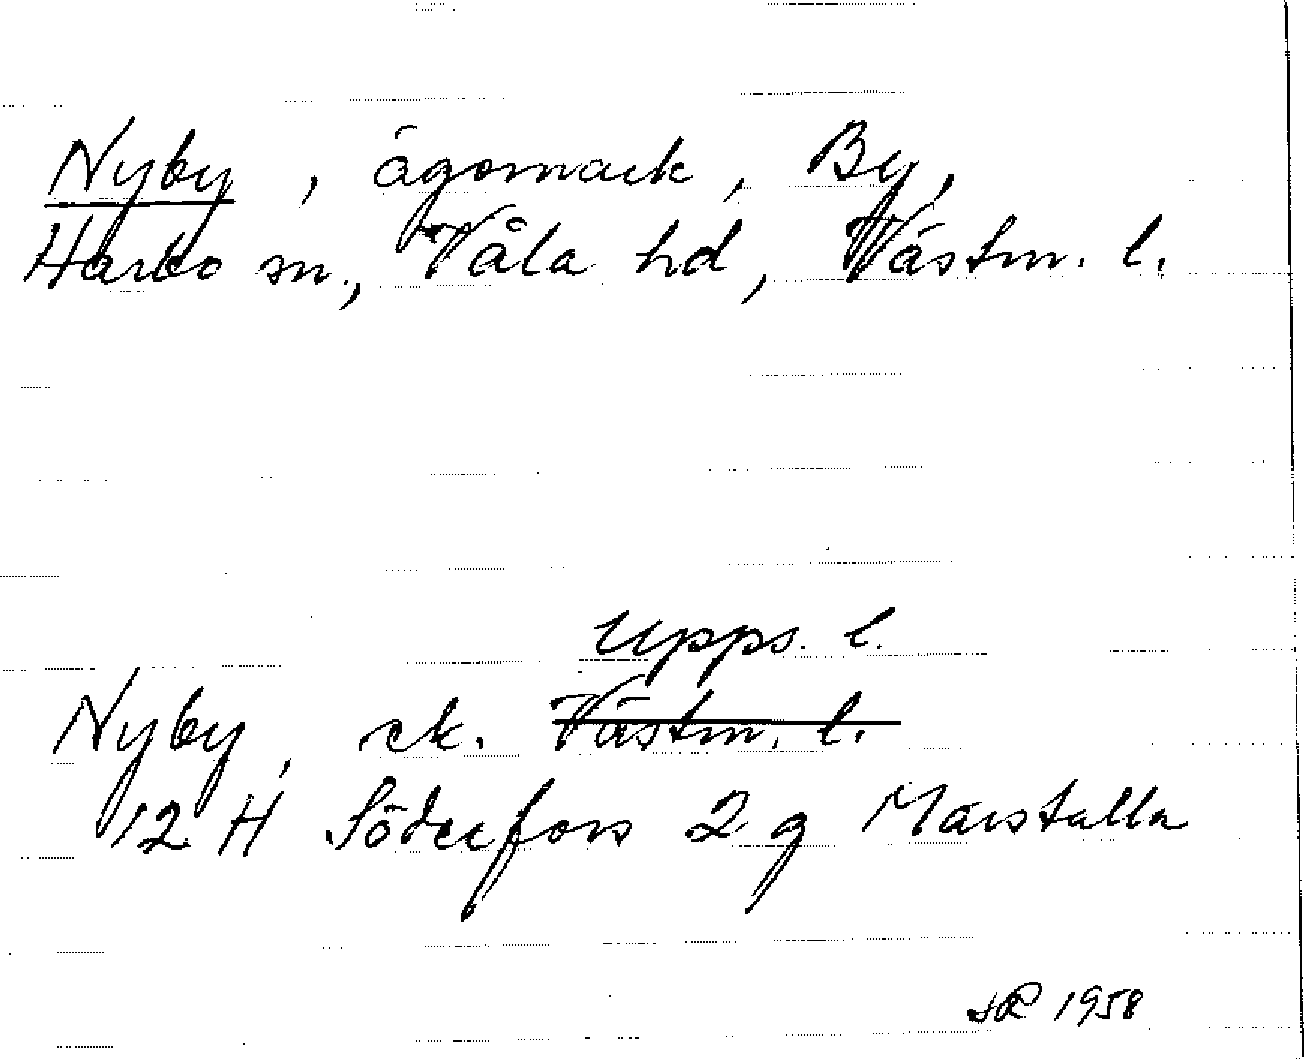 Nyby, ägomark, By,
Harbo sn., Våla hd, Västm. l.
Upps. l.
Nyby, ek. Västm. l.
12 H Söderfors 2 g Märstalla
1958